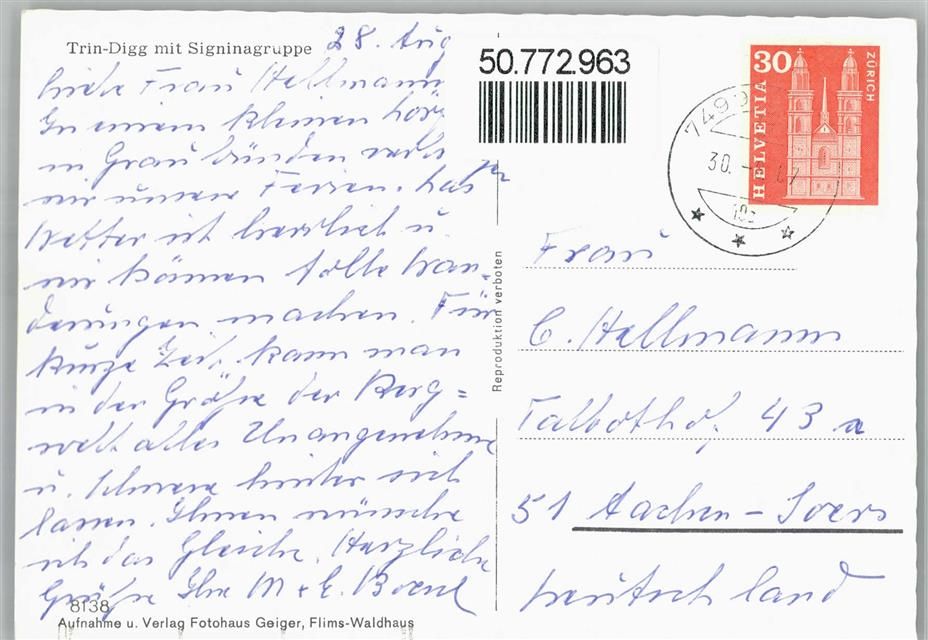 Trin-Digg mit Signinagruppe
28. Aug
Liebe Frau Hellmann
In einem kleinen Dorf
in Graubünden verbr
wir unsere Ferien. Das
Wetter ist herrlich u.
wir können tolle Wan-
derungen machen. Für
kurze Zeit kann man
in der Größe der Berg=
welt alles Unangenehme
u. Schwere hinter sich
lassen. Ihnen wünsche
ich das Gleiche. Herzliche
Grüße Ihre M + E.
8138
Aufnahme u. Verlag Fotohaus Geiger, Flims-Waldhaus
Reproduktion verboten
50.772.963
30
HELVETIA
ZÜRICH
30.
Frau
C. Hellmann
Talbothof 43 a
51 Aachen-Soers
Deutschland